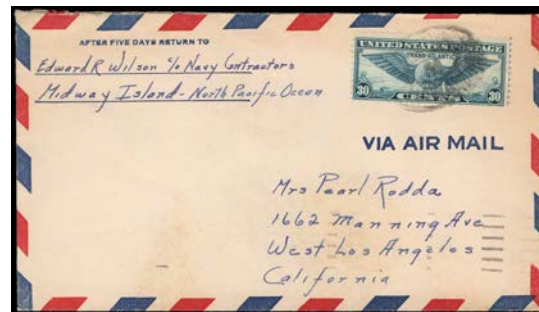 AFTER FIVE DAYS RETURN TO
Edward R Wilson % Navy Contractors
Midway Island - North Pacific Ocean
UNITED STATES POSTAGE
TRANS-ATLANTIC
30 CENTS 30
VIA AIR MAIL
Mrs Pearl Rodda
1662 Manning Ave
West Los Angeles
California